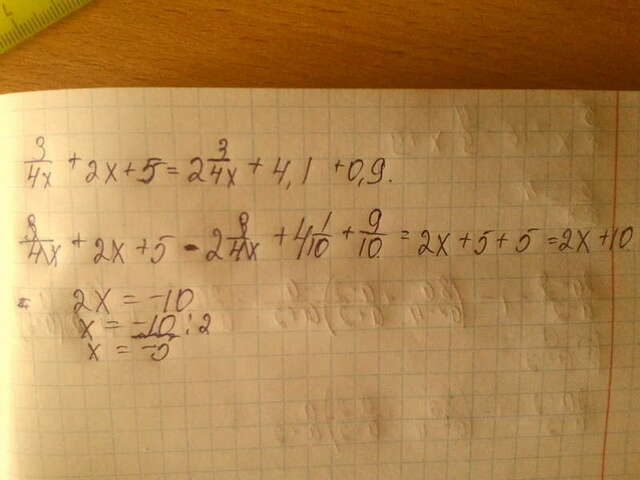 3/4x + 2x + 5 = 2 3/4x + 4,1 + 0,9.
3/4x + 2x + 5 - 2 3/4x + 4 1/10 + 9/10 = 2x + 5 + 5 = 2x + 10
= 2x = -10
x = -10 : 2
x = -5